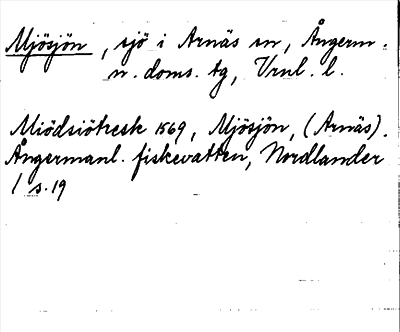 Mjösjön, sjö i Arnäs sn, Ångerm.
n. doms. tg, Vrnl. l.
Miödsiötresk 1569, Mjösjön, (Arnäs).
Ångermanl. fiskevatten, Nordlander
1 s. 19